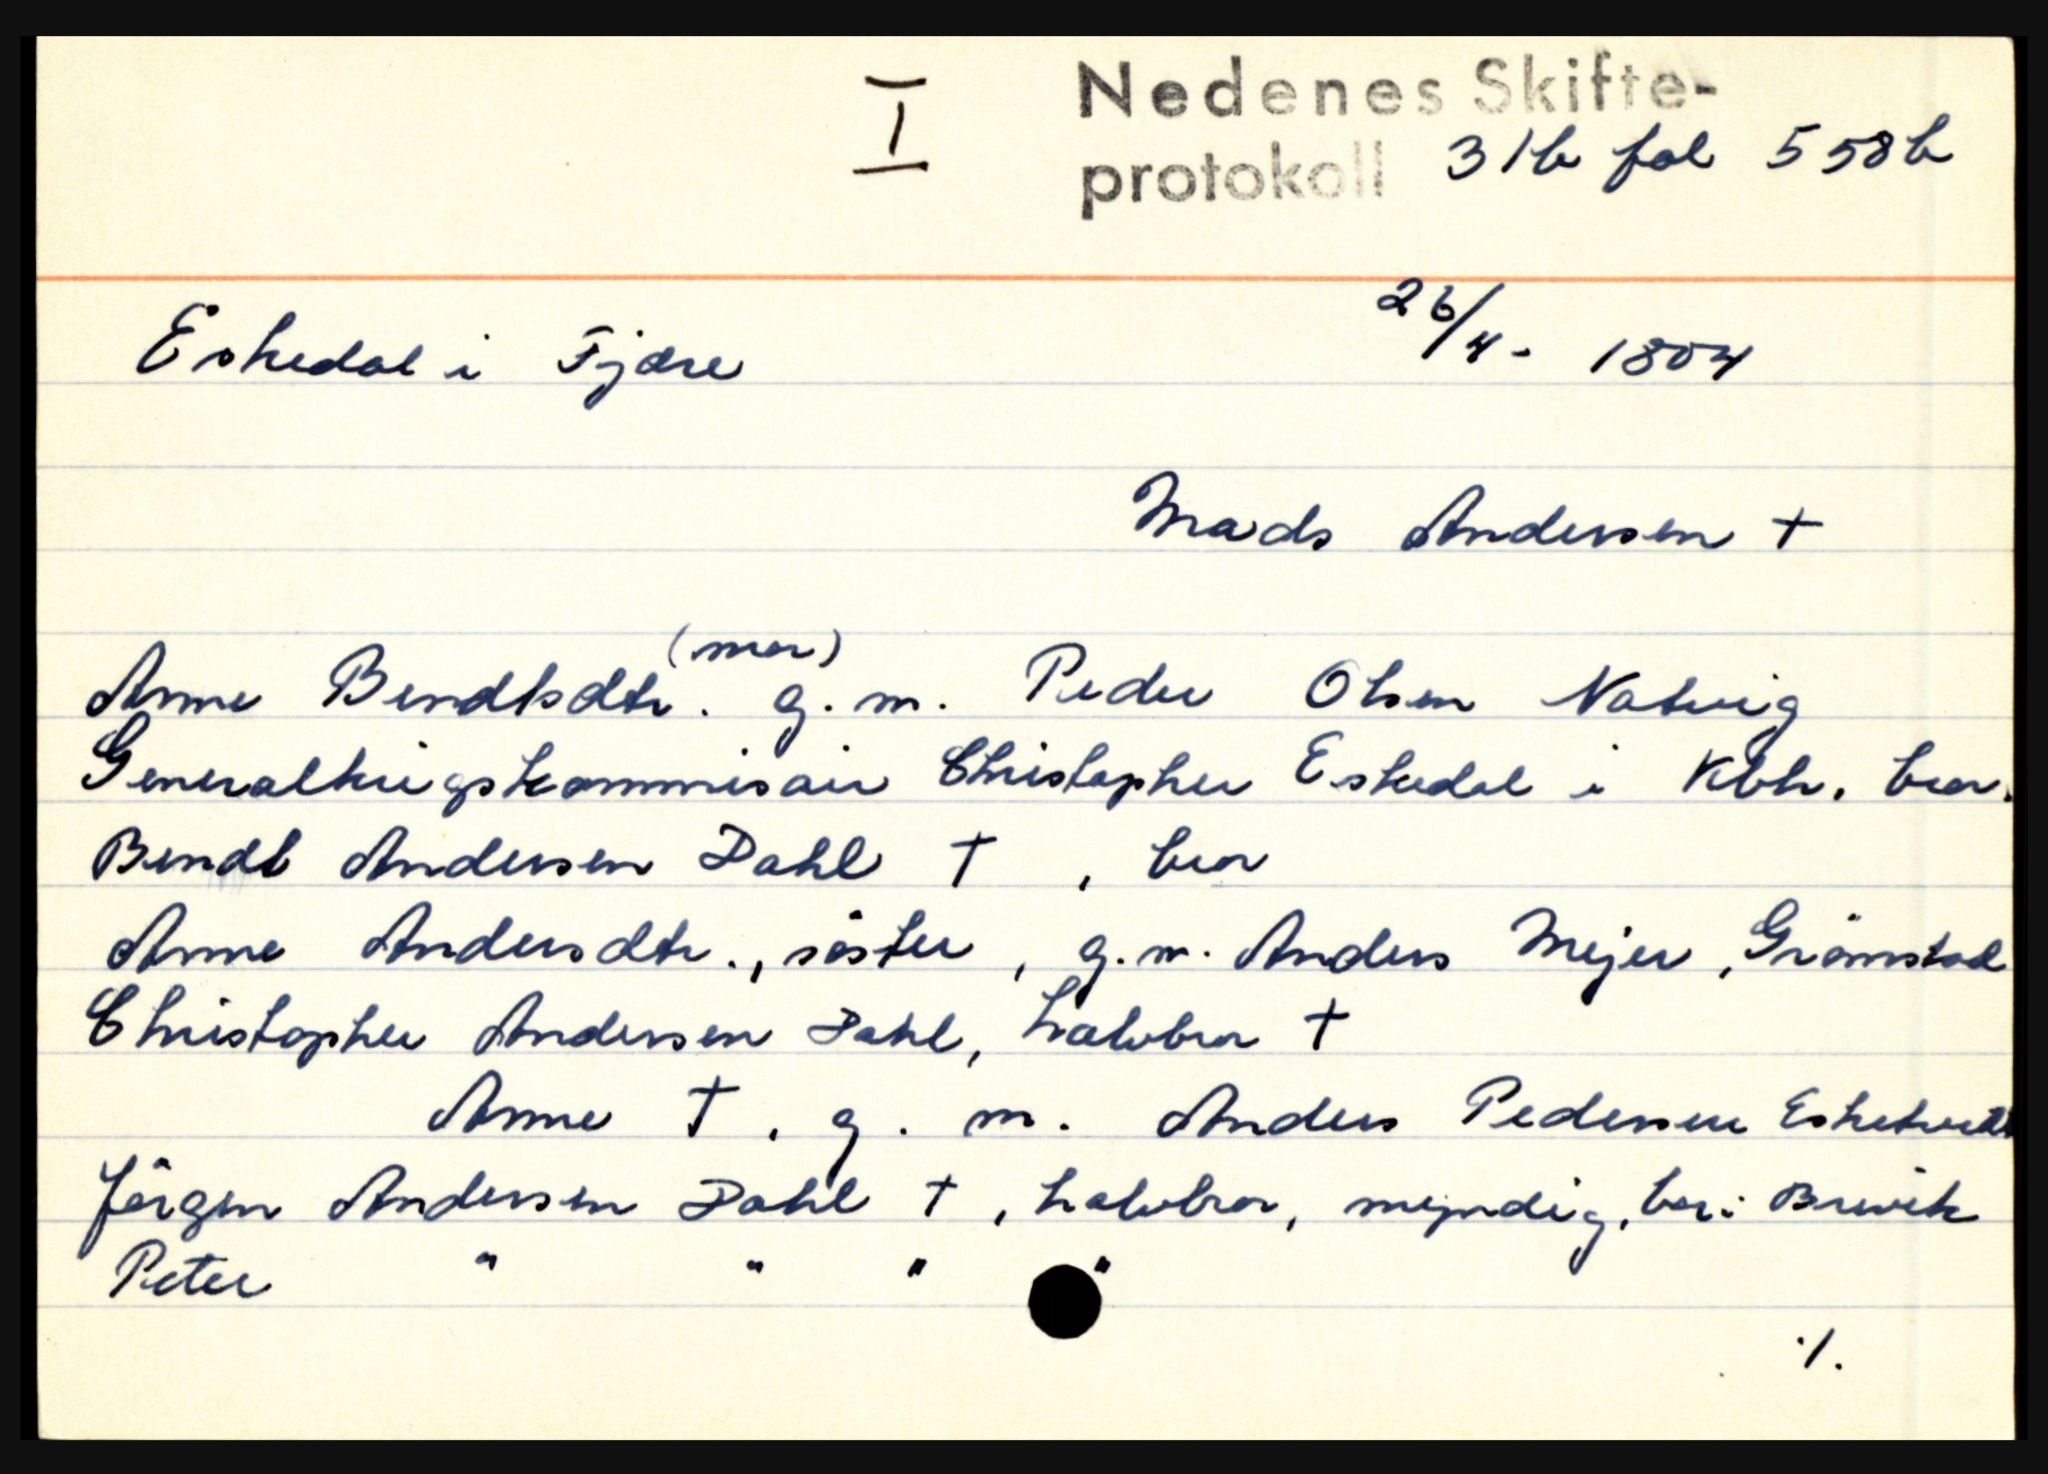 I
Nedenes Skifte-
protokoll 31b fol 558b
Eskedal i Fjære
26/4- 1804
Mads Andersen †
(mor)
Anne Bendtsdtr. g.m. Peder Olsen Natvig
Generalkrigskommisair Christopher Eskedal i Kbh. bror.
Bendt Andersen Dahl †, bror
Anne Andersdtr., söster, g.m. Anders Mejer, Grömstad
Christopher Andersen Dahl, halvbror †
Anne †. g. m. Anders Pedersen
Jörgen Andersen Dahl †, halvbror, myndig, bor i Brevik
Peter " " " "
./.